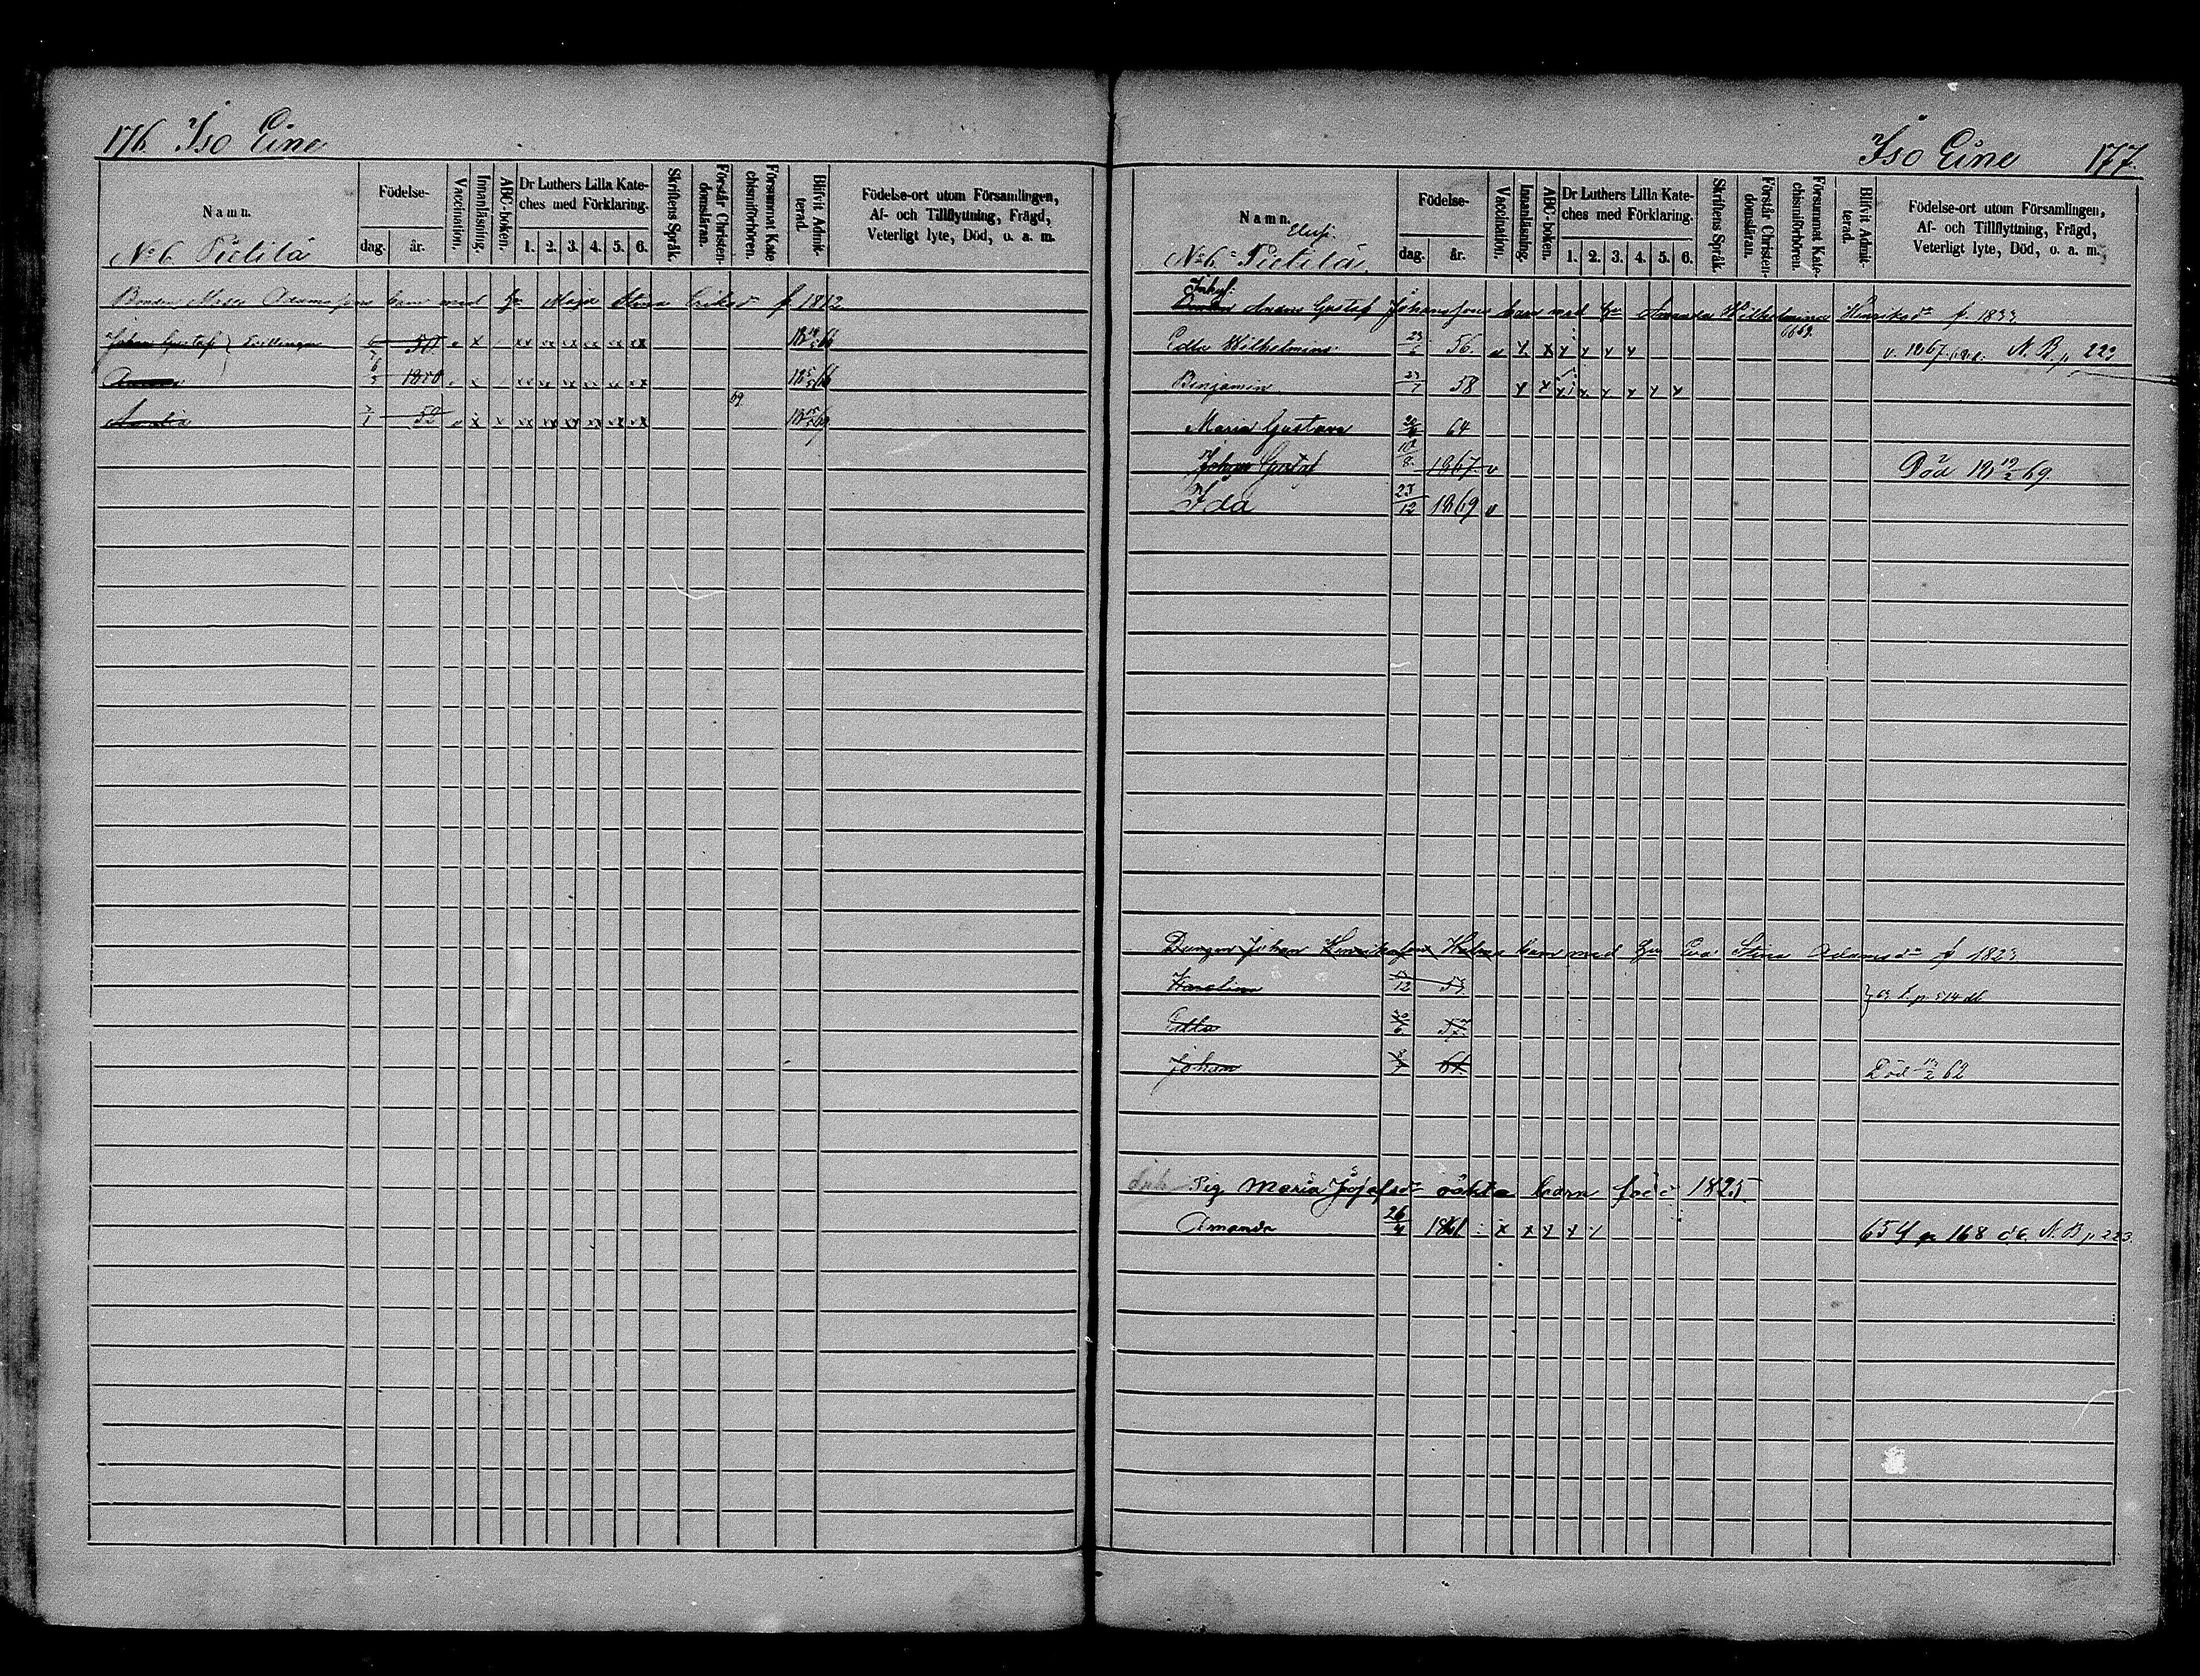 176. Iso Eine
Namn.
Födelse-
dag. år.
Vaccination.
Innanläsning.
ABC-boken.
Dr Luthers Lilla Kate-
ches med Förklaring.
1. 2. 3. 4. 5. 6.
Skriftens Språk.
Förstår Christen-
domsläran.
Försummat Kate
chismiförhören.
Blifvit Admit-
terad.
Födelse-ort utom Församlingen,
Af- och Tillflyttning, Frägd,
Veterligt lyte, Död, o. a. m.
No 6 Pietilä
Bonden Matts Adamssons barn med Maja Stina Eriksd f. 1812.
Johan Gustaf Tvillingar 50 v x xx xx xx xx xx xx 66
1850 v x xx xx xx xx xx xx 66
69
Amalia 52 v x x xx xx xx xx xx xx 69
Iso Eine 177
Namn.
Födelse-
dag. år.
Vaccination.
Innanläsning.
ABC-boken.
Dr Luthers Lilla Kate-
ches med Förklaring.
1. 2. 3. 4. 5. 6.
Skriftens Språk.
Förstår Christen-
domsläran.
Försummat Kate-
chismiförhören.
Blifvit Admit-
terad.
Födelse-ort utom Församlingen,
Af- och Tillflyttning, Frägd,
Veterligt lyte, Död, o. a. m.
No 6 Pietilä
Inhys. Gustaf Johanssons barn med Amanda Wilhelmina Henriksd f. 1833
Edla Wilhelmina 23/6 56. v 6669. N. B. p. 223
Benjamin 23/1 58
Maria Gustava 64
Johan Gustaf 12/8 1867 v Död 19/2 69.
Ida 23/12 1869 v
Johan Henriksson barn med Eva Stina Adamsd f 1823
Karolina 12 53. p. 514
Edla 20/6 57
Johan 61. Död 62
Pig. Maria Josefsd oäkta barn född 1825
Amanda 26/4 1861 65 p 168 N. B p. 223.